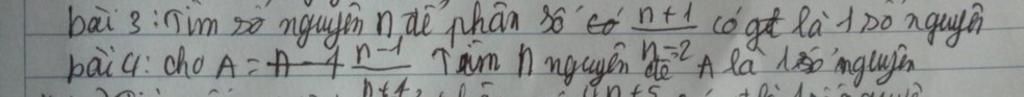 bài 3: Tìm số nguyên n để phân số có n+1 có gt là 1 số nguyên
n-2
bài 4: cho A = n-1 Tìm n nguyên để A là 1 số nguyên
n+4